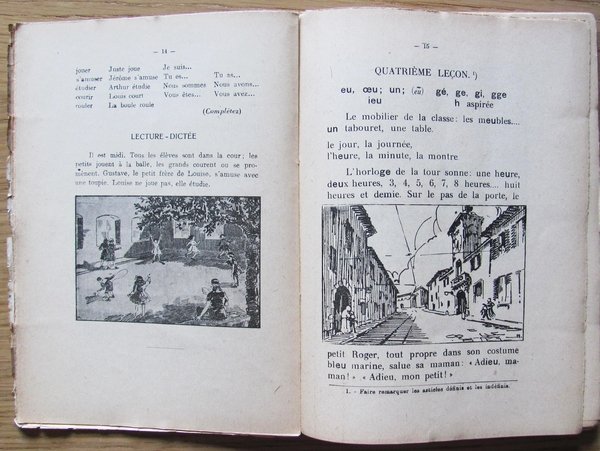 — 14 —
jouer Juste joue Je suis... 
s'amuser Jérôme s'amuse Tu es... Tu as...
étudier Arthur étudie Nous sommes Nous avons...
courir Louis court Vous êtes... Vous avez...
rouler La boule roule
(Complétez)
LECTURE - DICTÉE
Il est midi. Tous les élèves sont dans la cour; les
petits jouent à la balle, les grands courent ou se pro-
mènent. Gustave, le petit frère de Louise, s'amuse avec
une toupie. Louise ne joue pas, elle étudie.
— 15 —
QUATRIÈME LEÇON. ¹)
eu, œu; un; (eû) gé, ge, gi, gge
ieu h aspirée
Le mobilier de la classe: les meubles....
un tabouret, une table.
le jour, la journée,
l'heure, la minute, la montre
L'horloge de la tour sonne: une heure,
deux heures, 3, 4, 5, 6, 7, 8 heures.... huit
heures et demie. Sur le pas de la porte, le
petit Roger, tout propre dans son costume
bleu marine, salue sa maman: « Adieu, ma-
man! » « Adieu, mon petit! »
1. - Faire remarquer les articles définis et les indéfinis.